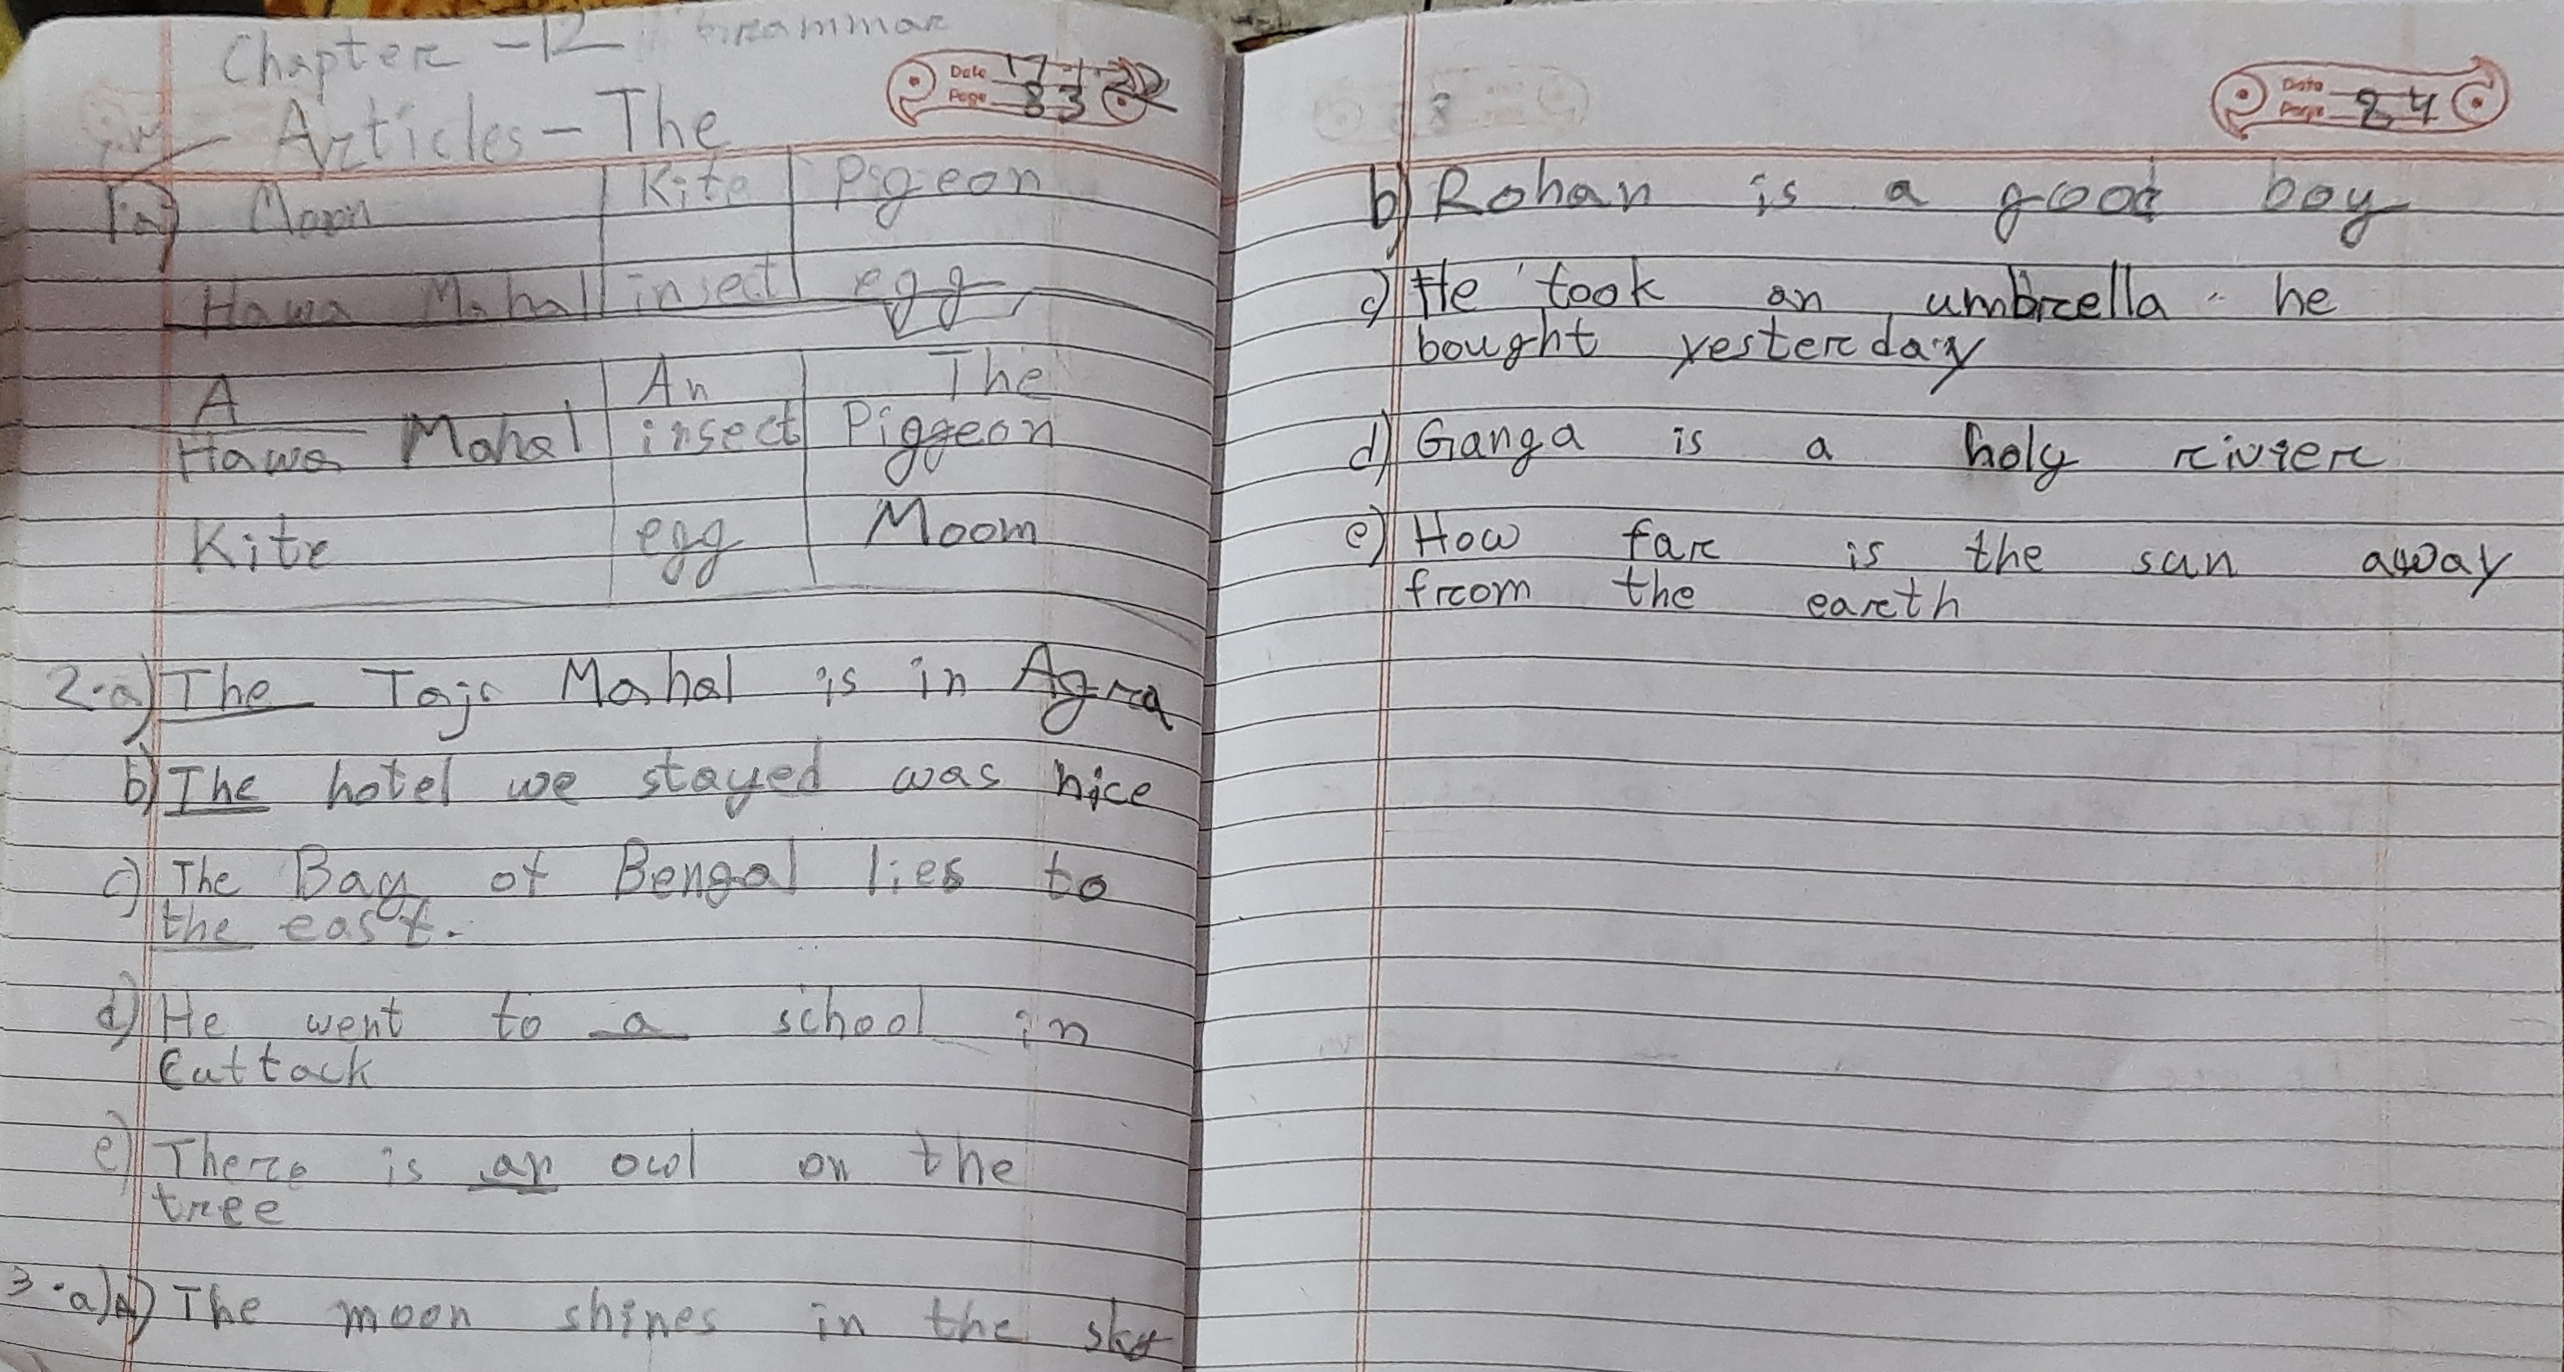 Chapter - 12 Grammar
Articles - The
Date
Page 83
1a) Moon Kite Pigeon
Hawa Mahal insect egg
A An The
Hawa Mahal insect Piggeon
Kite egg Moom
2.a) The Taj Mahal is in Agra
b) The hotel we stayed was nice
c) The Bay of Bengal lies to
the east.
d) He went to a school in
Cuttack
e) There is an owl on the
tree
3.a) The moon shines in the sky
Date
Page 84
b) Rohan is a good boy
c) He took an umbrella he
bought yesterday
d) Ganga is a holy rivier
e) How far is the sun away
from the earth